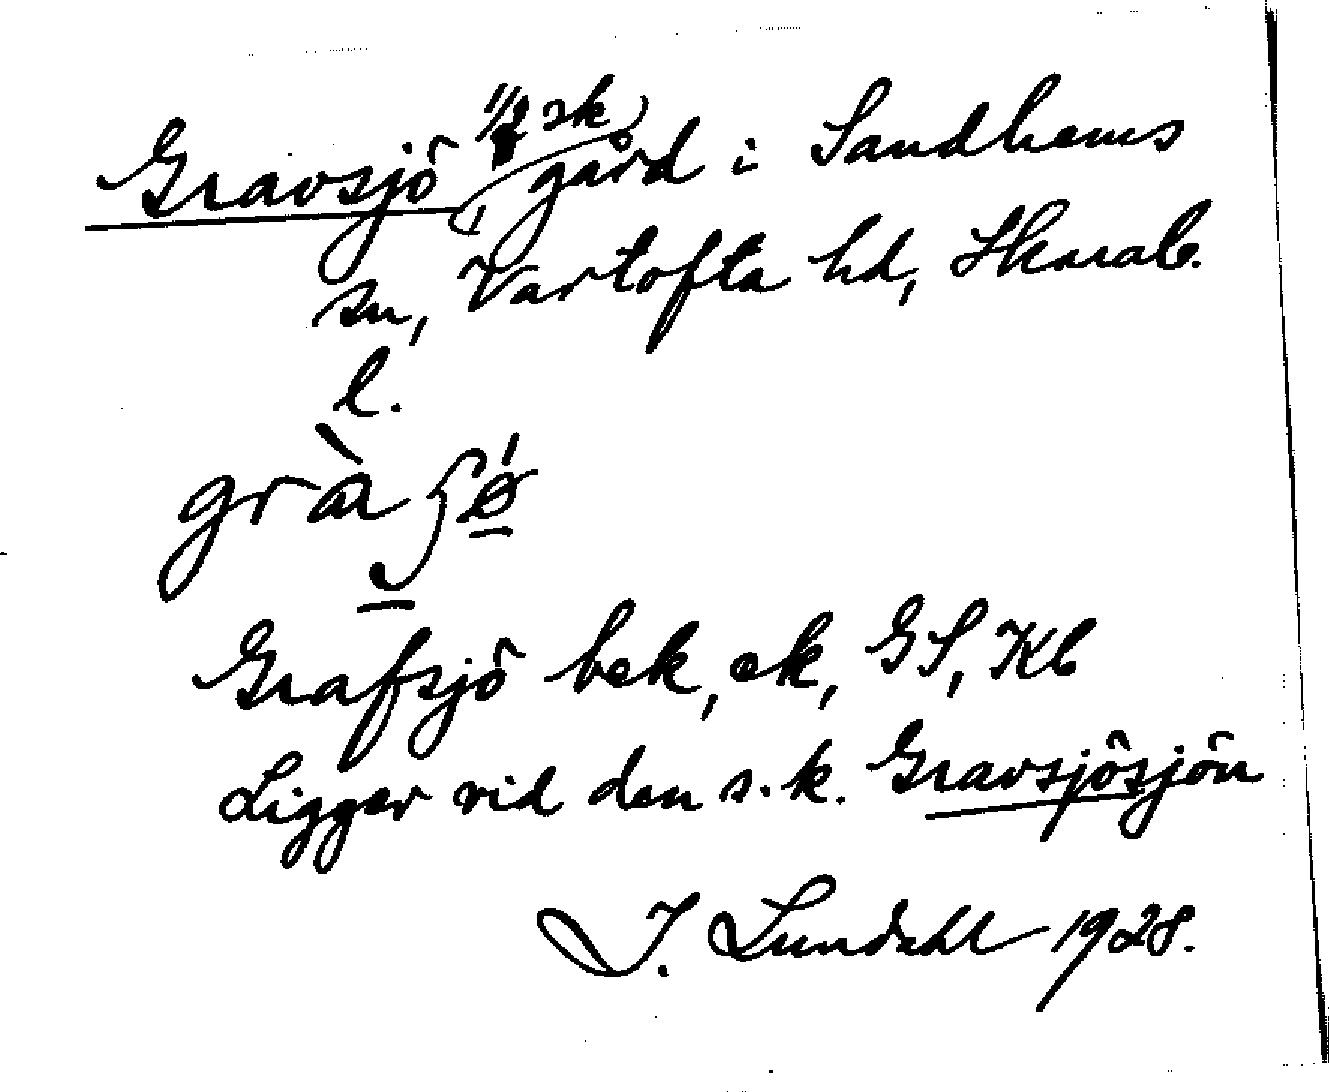 Gravsjö 1/2 sk gård i Sandhems
sn, Vartofta hd, Skarab.
l.
Grafsjö bek, ek, GS, Kb
Ligger vid den s.k. Gravsjösjön
I. Lundahl 1928.